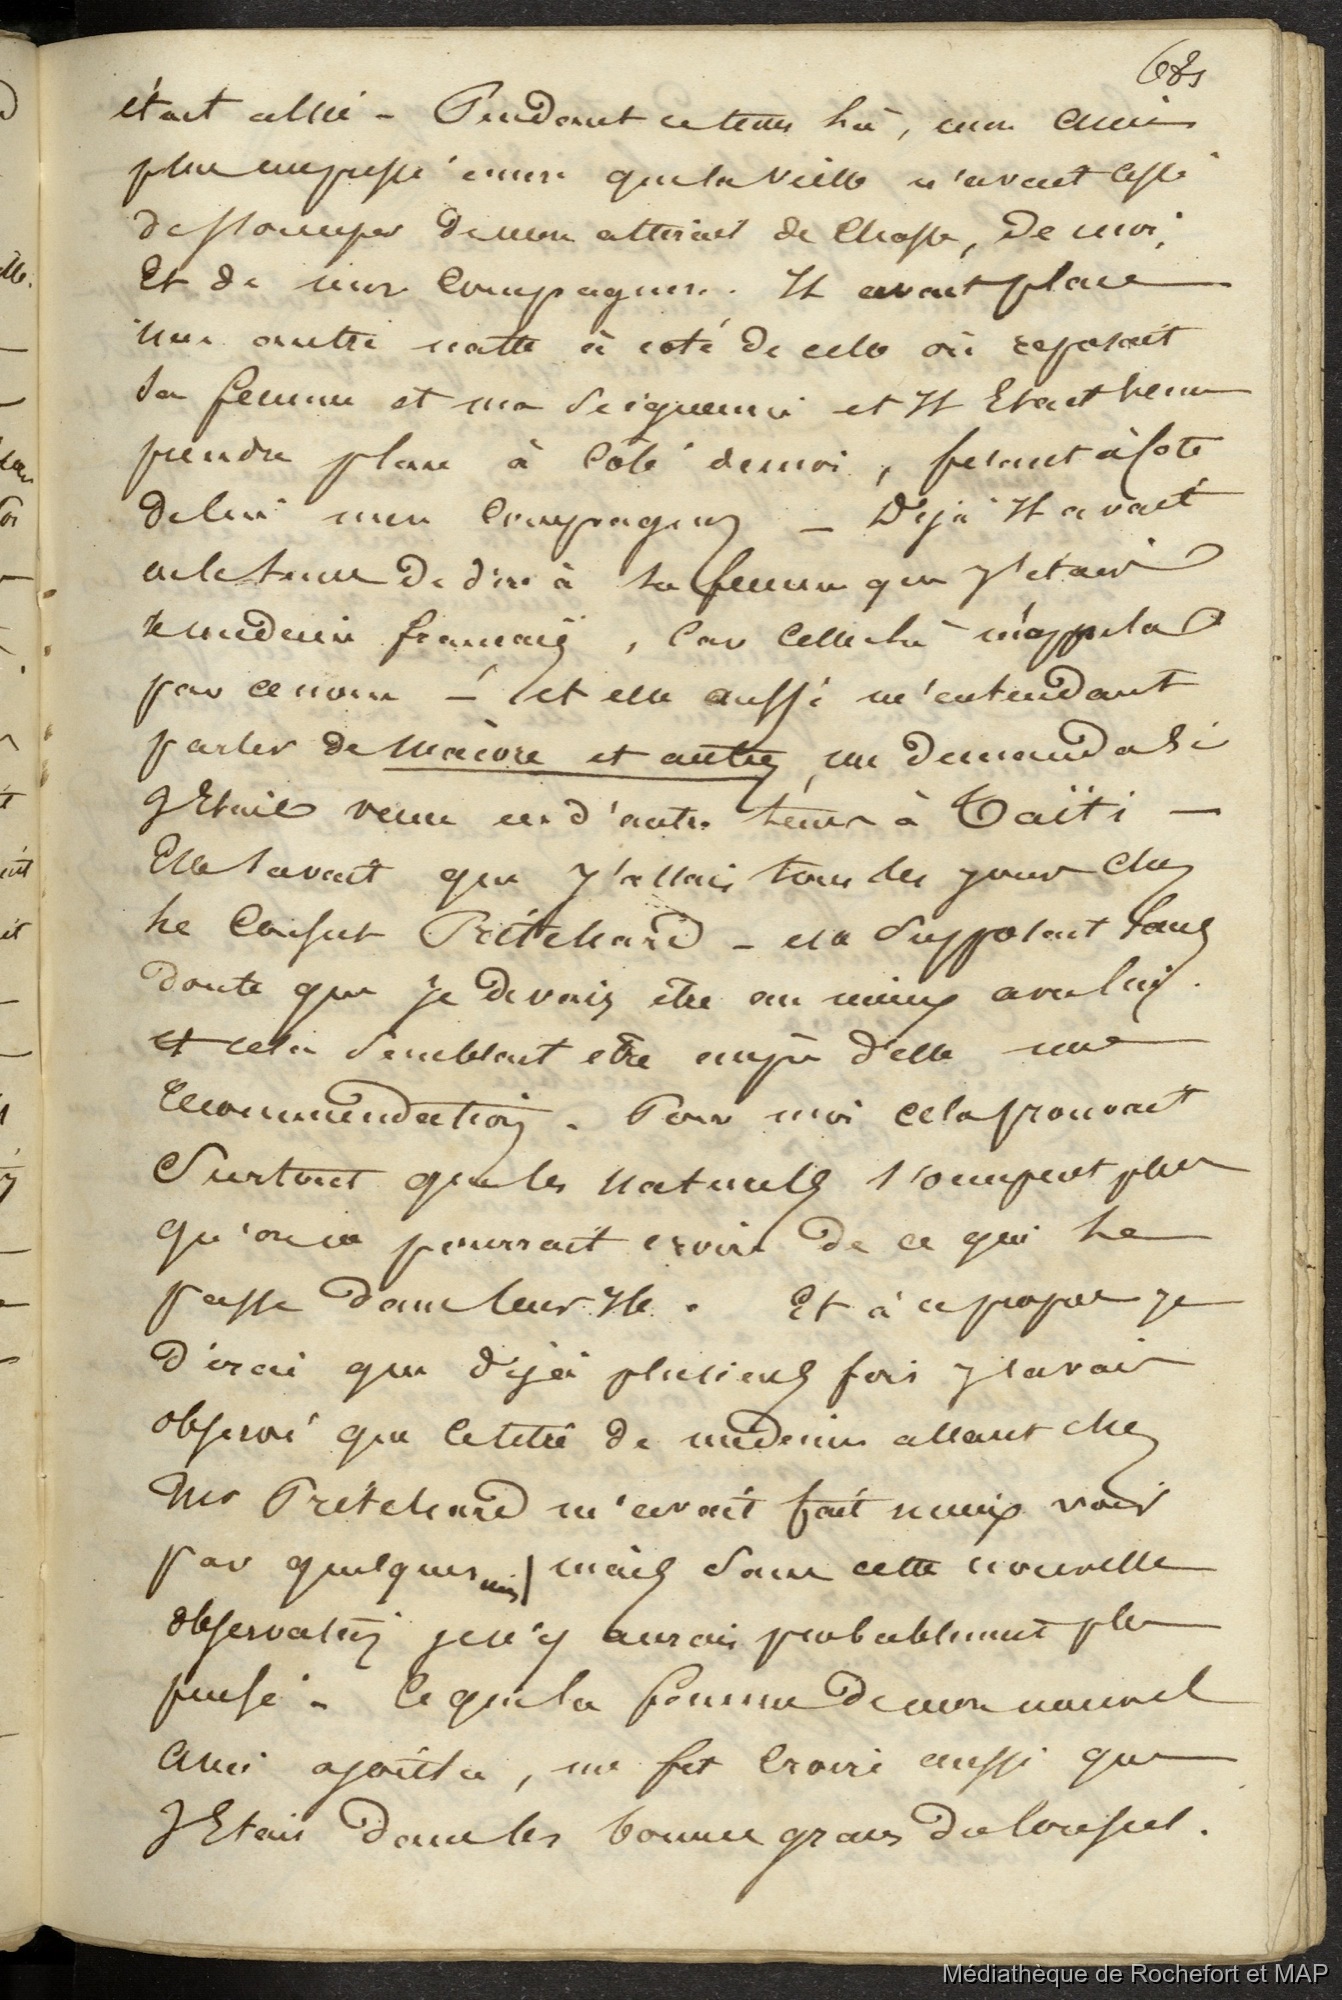 681
était assis - Pendant ce tems là, mon ami
plus empressé encore que la veille n'avait cessé
de s'occuper de mon attirail de chasse, de moi,
et de mon compagnon. Il avait placé
une autre natte à coté de celle où reposait
sa femme et ma seigneurie et Il Etait venu
prendre place à côté de moi, fesant à coté
de lui mon compagnon — Déjà Il avait
eu le tems de dire à sa femme que J'etais
le médecin français, car celle là m'appela
par ce nom — et elle aussi m'entendant
parler de maiore et autres, me demanda si
J'Etais venu en d'autres tems à Taïti —
Elle savait que J'allais tous les jours chez
le Consul Prétchard - elle supposait sans
doute que je devais être au mieux avec lui.
et cela semblait etre auprès d'elle une
recommendation. Pour moi cela prouvait
surtout que les naturels s'occupent plus
qu'on ne pourrait croire de ce qui se
passe dans leur Ile. Et à ce propos je
dirai que déjà plusieurs fois J'avais
observé que le titre de médecin allant chez
Mr Prétchard m'avait fait mieux voir
par quelques uns / mais sans cette nouvelle
observation je n'y aurais probablement plus
pensé - Ce que la femme de mon nouvel
ami ajoûta, me fit croire aussi que
J'Etais dans les bonnes graces du Consul.
Médiathèque de Rochefort et MAP